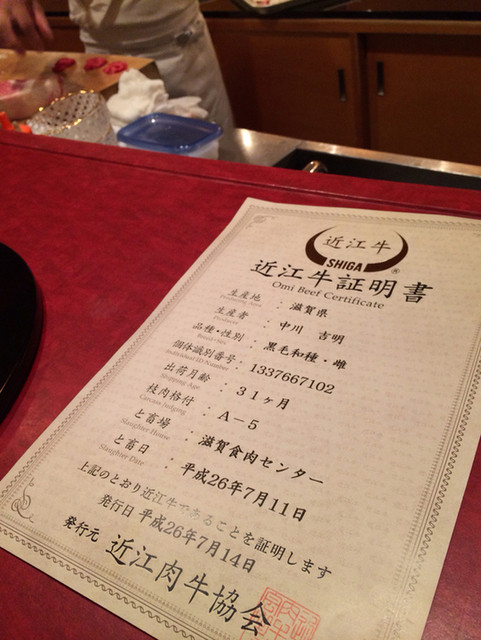 近江牛
SHIGA
®
近江牛証明書
Omi Beef Certificate
生産地 : 滋賀県
Producing Area
生産者 : 中川 吉明
Producer
品種・性別 : 黒毛和種・雌
Breed・Sex
個体識別番号 : 1337667102
Individual ID Number
出荷月齢 : 31ヶ月
Shipping Age
枝肉格付 : A-5
Carcass Judging
と畜場 : 滋賀食肉センター
Slaughter House
と畜日 : 平成26年7月11日
Slaughter Date
上記のとおり近江牛であることを証明します
発行日 平成26年7月14日
発行元 近江肉牛協会